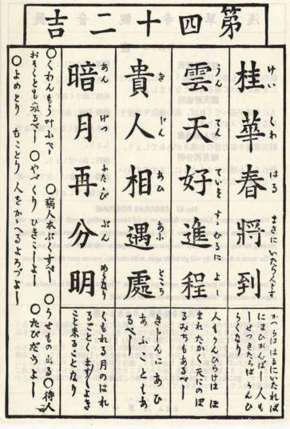 第四十二吉
桂華春將到
けい くわ はる まさに いたらんとす
雲天好進程
うん てん
貴人相遇處
き じん あひ あふ ところ
暗月再分明
あん げつ ふたゝび ぶん めいなり
かつらははるにいたれば
人も
らくなり
人もうんひらけば ほ
まれたかく 天にのぼ
るみちもあるべし
あふこともあ
るべし
くもれる月のはれ
るごとく
こと来ることなり
○くわんもう叶ふべし ○病人本ぶくすべし ○うせもの出る ○待人
おそくとも来るべし ○やづくり ひきこしよし
○よめとり むことり 人をかゝへるよろづよし ○たびだちよし